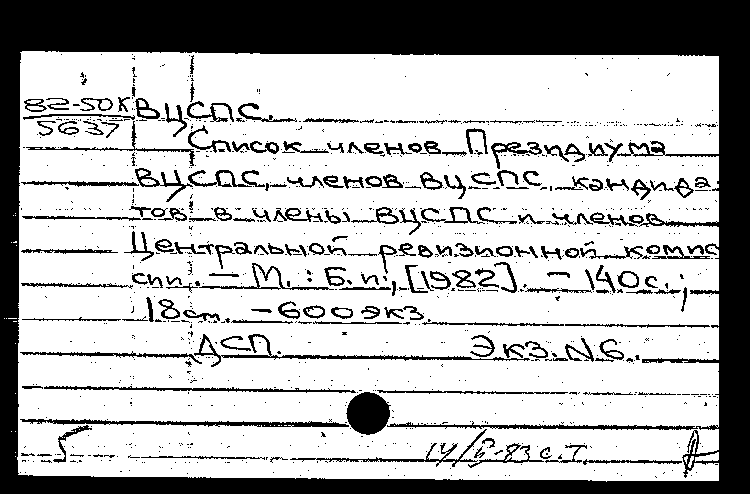 82-50К ВЦСПС.
5637
Список членов Президиума
ВЦСПС, членов ВЦСПС, кандида-
тов в члены ВЦСПС и членов
Центральной ревизионной комис
сии. — М. : Б. и., [1982]. — 140с.;
18см. — 600экз.
ДСП. Экз. N6.
5 14/II-83 с.т.